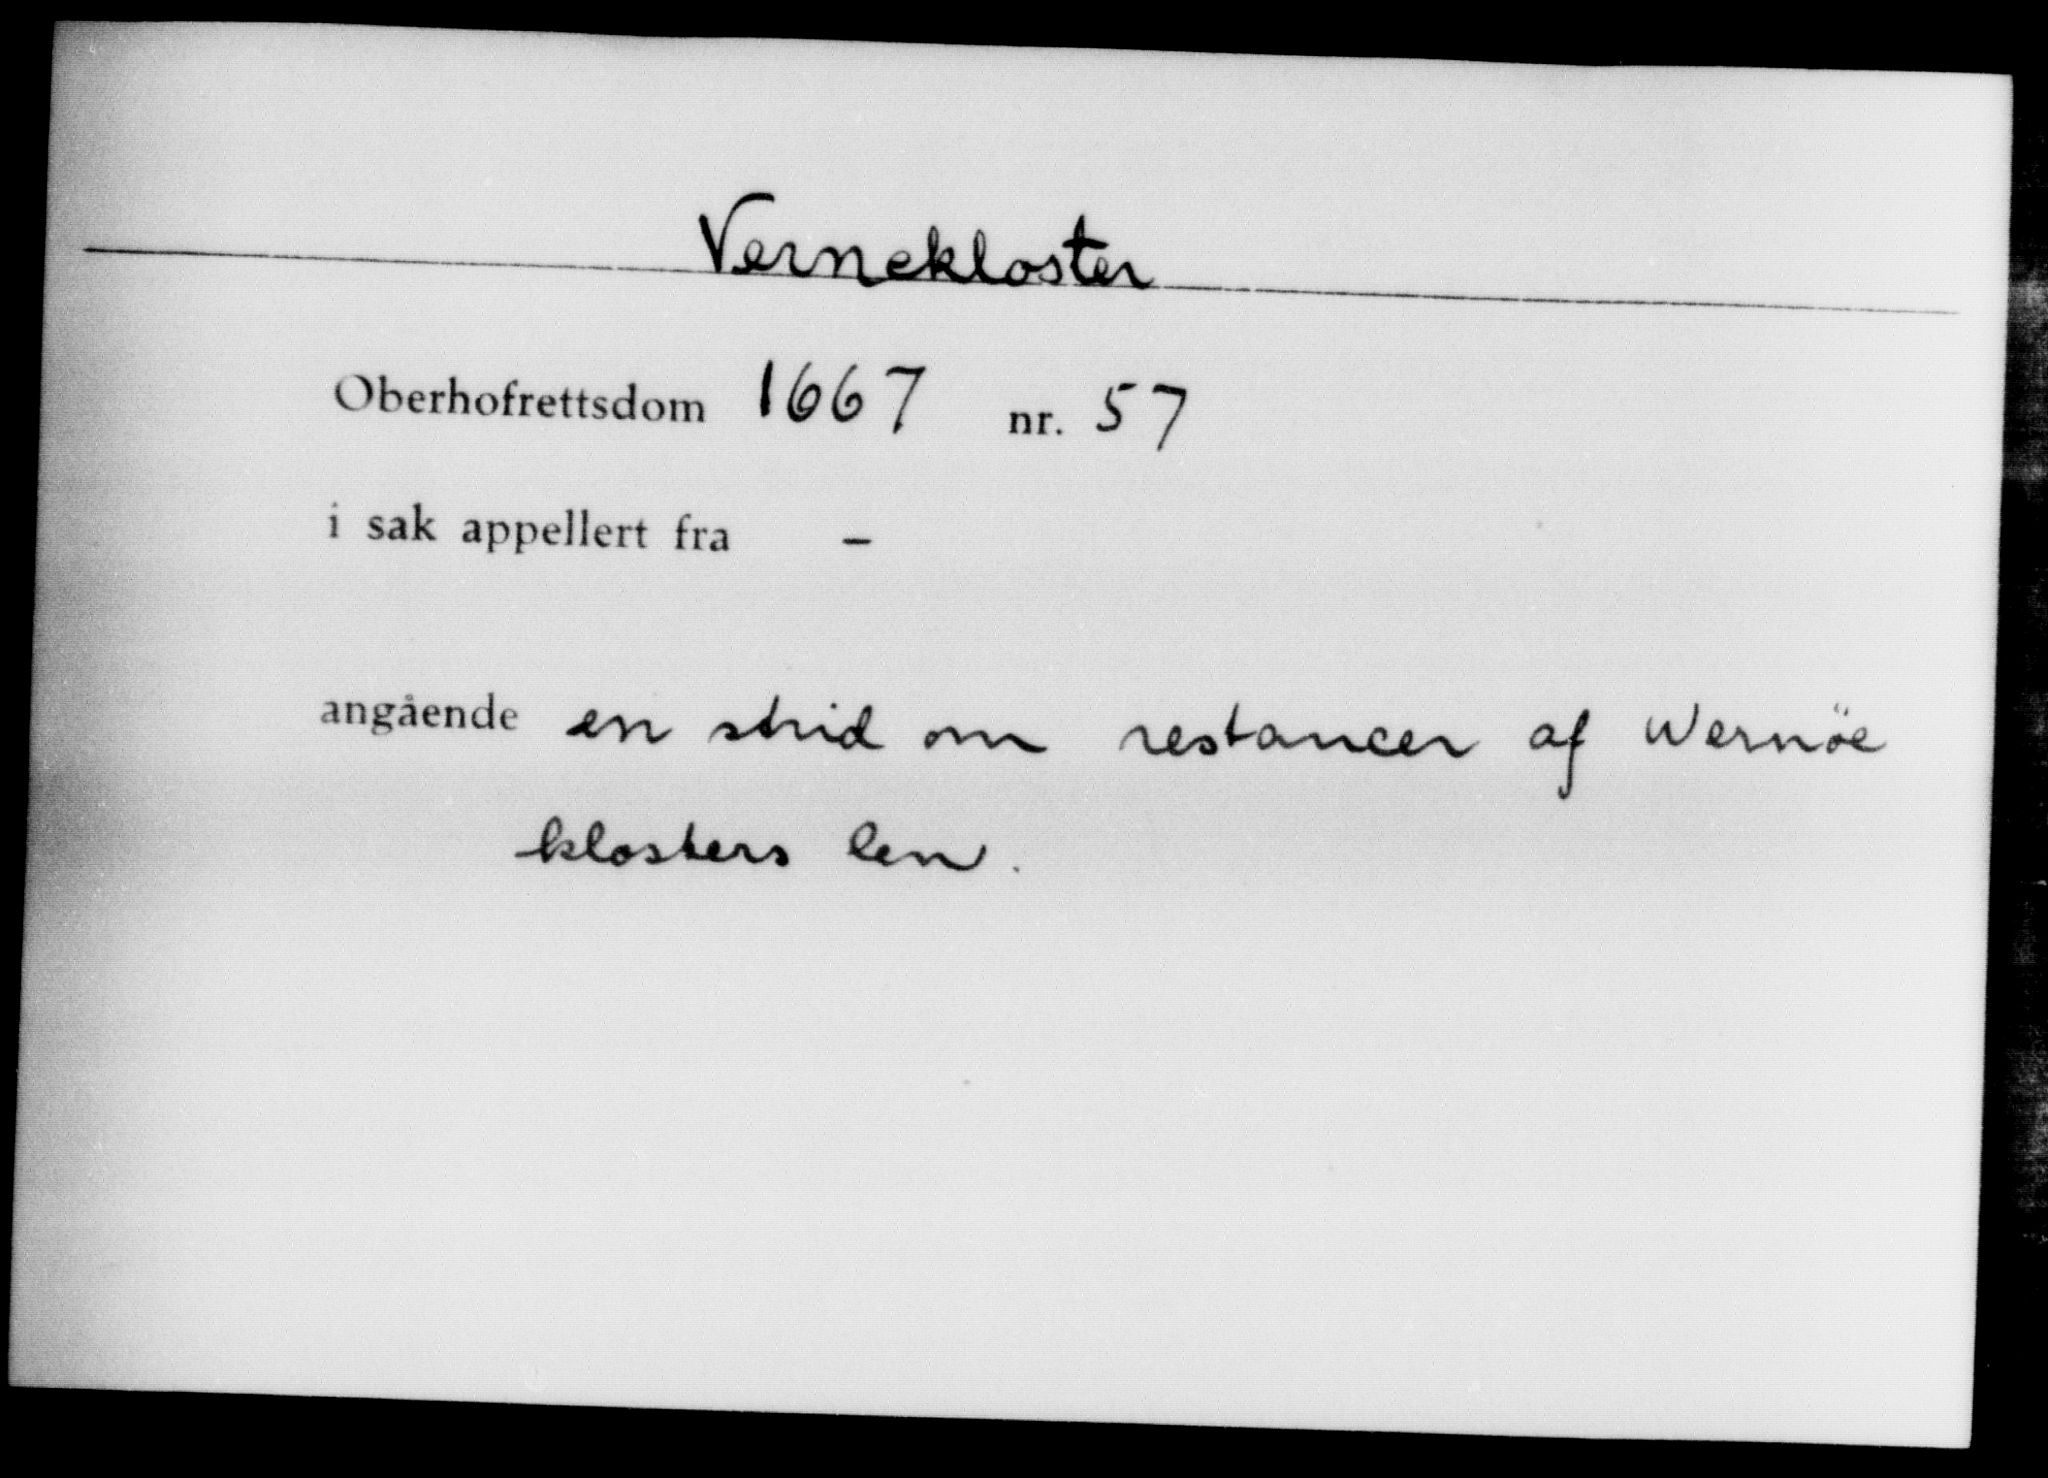 Vernekloster
Oberhofrettsdom 1667 nr. 57
i sak appellert fra –
angående en strid om restancer af Wernöe
klosters len.